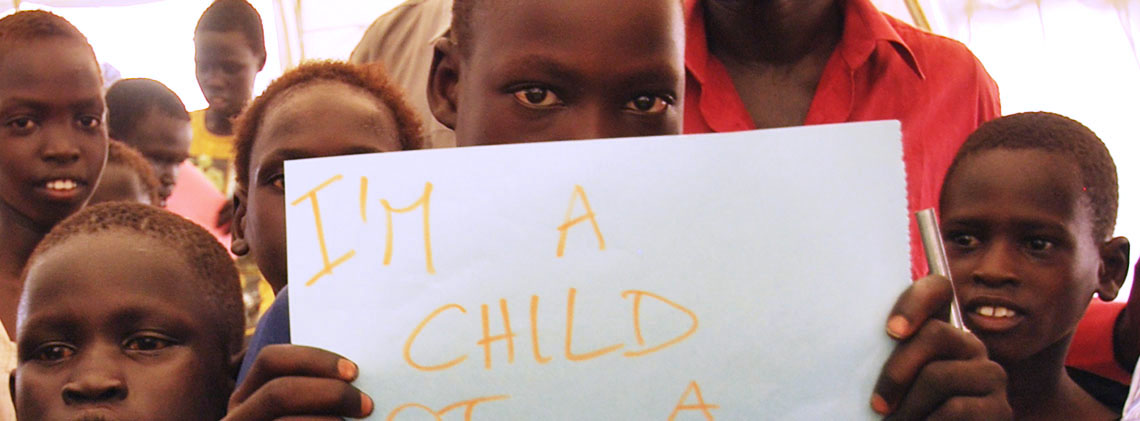 I'M A
CHILD
A